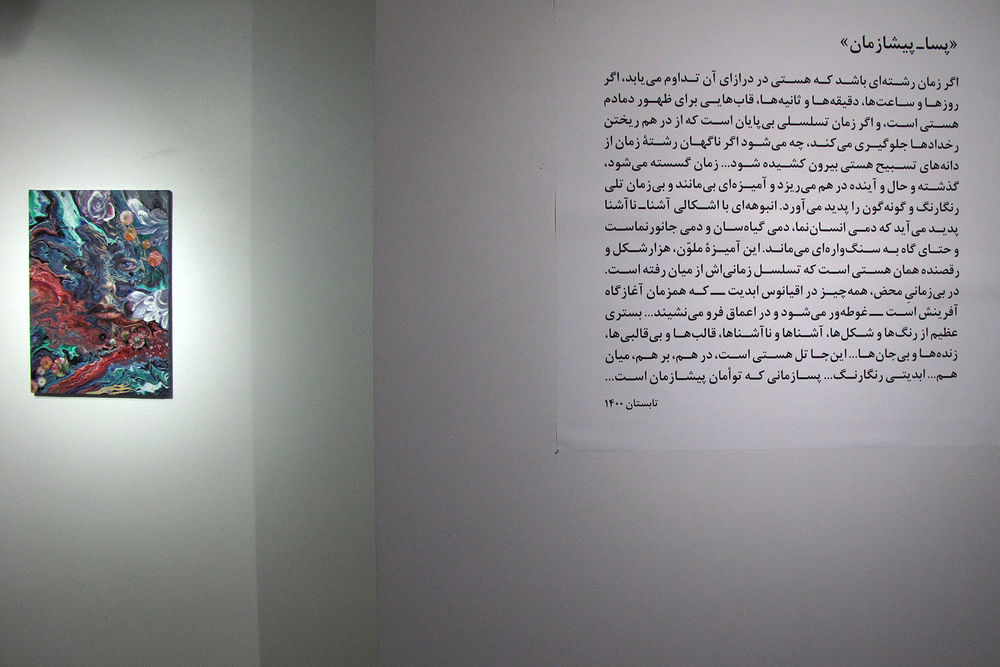 «پساـ پیشازمان»
اگر زمان رشته‌ای باشد که هستی در درازای آن تداوم می‌یابد، اگر
روزها و ساعت‌ها، دقیقه‌ها و ثانیه‌ها، قاب‌هایی برای ظهور دمادم
هستی است، و اگر زمان تسلسلی بی‌پایان است که از در هم ریختن
رخدادها جلوگیری می‌کند، چه می‌شود اگر ناگهان رشتهٔ زمان از
دانه‌های تسبیح هستی بیرون کشیده شود... زمان گسسته می‌شود،
گذشته و حال و آینده در هم می‌ریزد و آمیزه‌ای بی‌مانند و بی‌زمان تلی
رنگارنگ و گونه‌گون را پدید می‌آورد. انبوهه‌ای با اشکالی آشناـ ناآشنا
پدید می‌آید که دمی انسان‌نما، دمی گیاه‌سان و دمی جانورنماست
و حتای گاه به سنگ‌واره‌ای می‌ماند. این آمیزهٔ ملوّن، هزارشکل و
رقصنده همان هستی است که تسلسل زمانی‌اش از میان رفته است.
در بی‌زمانی محض، همه‌چیز در اقیانوس ابدیت ــ که همزمان آغازگاه
آفرینش است ــ غوطه‌ور می‌شود و در اعماق فرو می‌نشیند... بستری
عظیم از رنگ‌ها و شکل‌ها، آشناها و ناآشناها، قالب‌ها و بی‌قالبی‌ها،
زنده‌ها و بی‌جان‌ها... این‌جا تل هستی است، در هم، بر هم، میان
هم... ابدیتی رنگارنگ... پسازمانی که توأمان پیشازمان است...
تابستان ۱۴۰۰